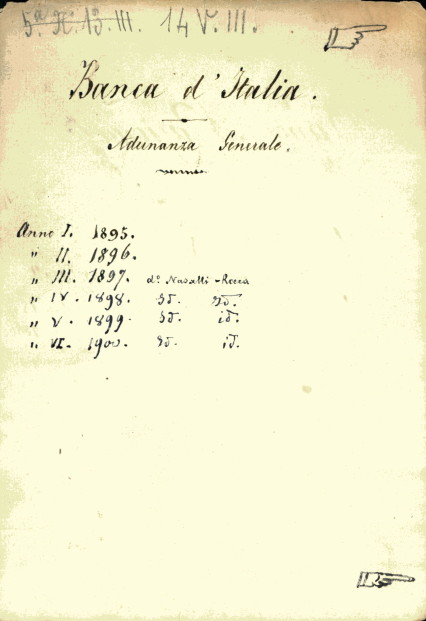 5.ª X. 13. III. 14 V. III.
Banca d'Italia.
Adunanza Generale.
Anno I. 1895.
" II. 1896.
" III. 1897. d.º Nasalli-Rocca
" IV. 1898. id. id.
" V. 1899 id. id.
" VI. 1900. id. id.